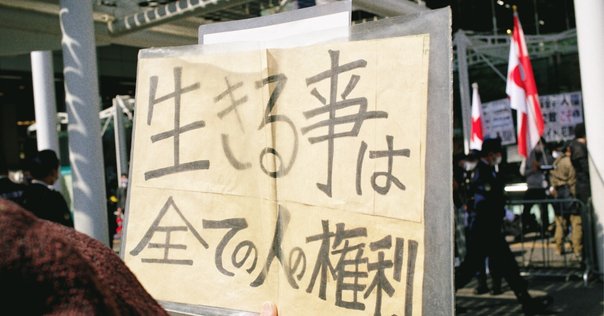 生きる事は
全ての人の権利